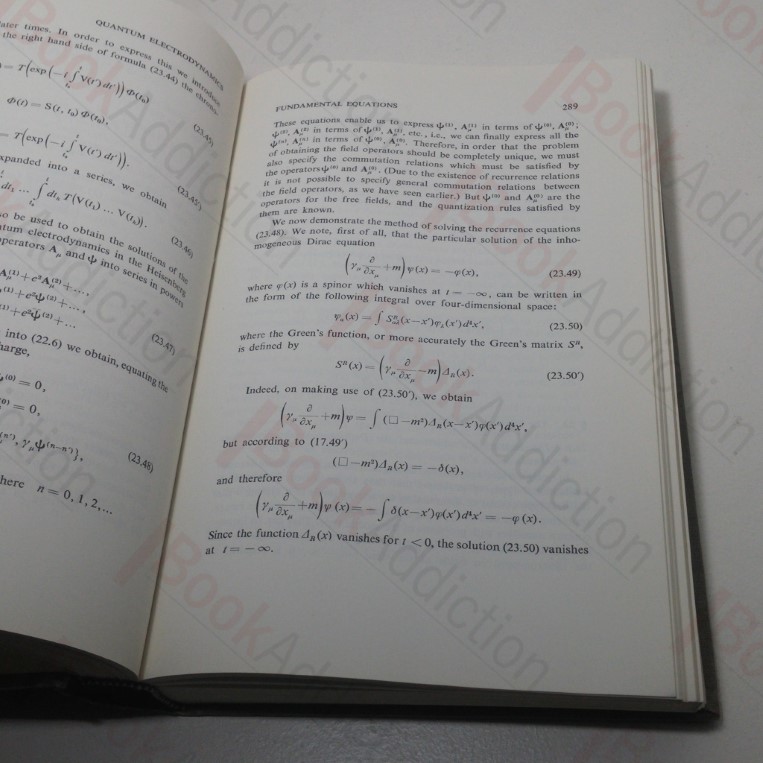 QUANTUM ELECTRODYNAMICS
ater times. In order to express this we introduce
the right hand side of formula (23.44) the chrono-
= T(exp(−i ∫ V(t′) dt′)) Φ(t₀)
t₀
Φ(t) = S(t, t₀) Φ(t₀), (23.45)
= T(exp(−i ∫ V(t′) dt′)). (23.45′)
t₀
xpanded into a series, we obtain
dt₁ ... ∫ dtₙ T(V(t₁) ... V(tₙ)). (23.46)
t₀
so be used to obtain the solutions of the
tum electrodynamics in the Heisenberg
perators Aμ and ψ into series in powers
Aμ⁽¹⁾+e²Aμ⁽²⁾+...,
⁽¹⁾+e²ψ⁽²⁾+...,
⁽¹⁾+e²ψ⁽²⁾+... (23.47)
into (22.6) we obtain, equating the
harge,
⁽⁰⁾ = 0,
⁽⁰⁾ = 0,
⁽ⁿ′⁾, γμψ⁽ⁿ⁻ⁿ′⁾}, (23.48)
here n = 0, 1, 2,...
FUNDAMENTAL EQUATIONS 289
These equations enable us to express ψ⁽¹⁾, Aμ⁽¹⁾ in terms of ψ⁽⁰⁾, Aμ⁽⁰⁾;
ψ⁽²⁾, Aμ⁽²⁾ in terms of ψ⁽¹⁾, Aμ⁽¹⁾, etc., i.e., we can finally express all the
ψ⁽ⁿ⁾, Aμ⁽ⁿ⁾ in terms of ψ⁽⁰⁾, Aμ⁽⁰⁾. Therefore, in order that the problem
of obtaining the field operators should be completely unique, we must
also specify the commutation relations which must be satisfied by
the operators ψ⁽⁰⁾ and Aμ⁽⁰⁾. (Due to the existence of recurrence relations
it is not possible to specify general commutation relations between
the field operators, as we have seen earlier.) But ψ⁽⁰⁾ and Aμ⁽⁰⁾ are the
operators for the free fields, and the quantization rules satisfied by
them are known.
We now demonstrate the method of solving the recurrence equations
(23.48). We note, first of all, that the particular solution of the inho-
mogeneous Dirac equation
(γμ ∂/∂xμ + m) ψ(x) = −φ(x), (23.49)
where φ(x) is a spinor which vanishes at t = −∞, can be written in
the form of the following integral over four-dimensional space:
ψₐ(x) = ∫ Sᴿₐλ(x−x′)φλ(x′)d⁴x′, (23.50)
where the Green's function, or more accurately the Green's matrix Sᴿ,
is defined by
Sᴿ(x) = (γμ ∂/∂xμ − m) Δ_R(x). (23.50′)
Indeed, on making use of (23.50′), we obtain
(γμ ∂/∂xμ + m) ψ = ∫ (□ − m²) Δ_R(x−x′)φ(x′)d⁴x′,
but according to (17.49′)
(□ − m²) Δ_R(x) = −δ(x),
and therefore
(γμ ∂/∂xμ + m) ψ (x) = − ∫ δ(x−x′)φ(x′)d⁴x′ = −φ (x).
Since the function Δ_R(x) vanishes for t < 0, the solution (23.50) vanishes
at t = −∞.
BookAddiction